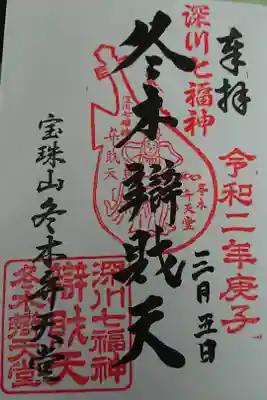 奉拝
深川七福神
令和二年庚子
三月五日
冬木辯財天
深川七福神
弁財天
冬木
弁天堂
宝珠山冬木弁天堂
深川七福神
辯財天
冬木弁天堂